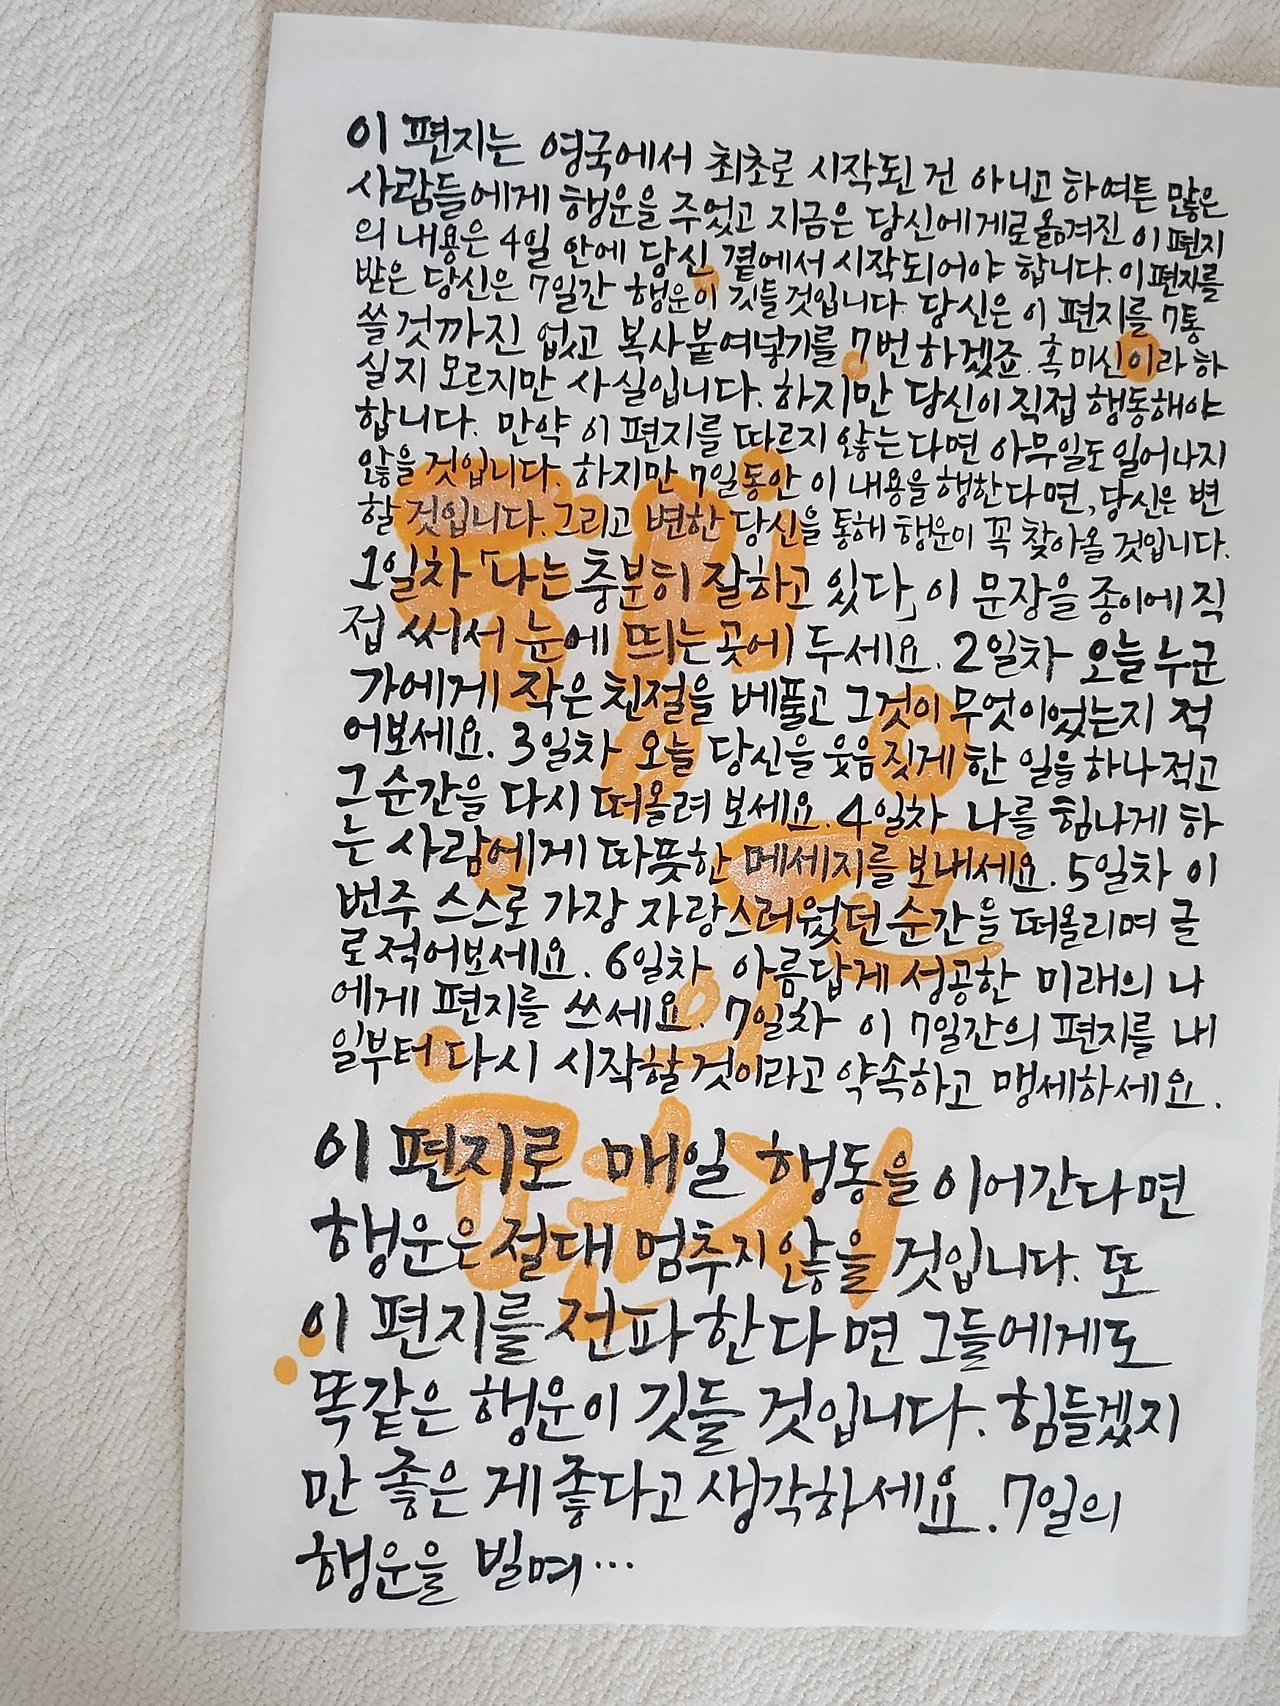 이 편지는 영국에서 최초로 시작된 건 아니고 하여튼 많은
사람들에게 행운을 주었고 지금은 당신에게로 옮겨진 이 편지
의 내용은 4일 안에 당신 곁에서 시작되어야 합니다. 이 편지를
받은 당신은 7일간 행운이 깃들 것입니다. 당신은 이 편지를 7통
쓸 것까진 없고 복사 붙여넣기를 7번 하겠죠. 혹 미신이라 하
실지 모르지만 사실입니다. 하지만 당신이 직접 행동해야
합니다. 만약 이 편지를 따르지 않는다면 아무일도 일어나지
않을 것입니다. 하지만 7일동안 이 내용을 행한다면, 당신은 변
할 것입니다. 그리고 변한 당신을 통해 행운이 꼭 찾아올 것입니다.
1일차 「나는 충분히 잘하고 있다」 이 문장을 종이에 직
접 써서 눈에 띄는 곳에 두세요. 2일차 오늘 누군
가에게 작은 친절을 베풀고 그것이 무엇이었는지 적
어보세요. 3일차 오늘 당신을 웃음 짓게 한 일을 하나 적고
그 순간을 다시 떠올려 보세요. 4일차 나를 힘나게 하
는 사람에게 따뜻한 메세지를 보내세요. 5일차 이
번주 스스로 가장 자랑스러웠던 순간을 떠올리며 글
로 적어보세요. 6일차 아름답게 성공한 미래의 나
에게 편지를 쓰세요. 7일차 이 7일간의 편지를 내
일부터 다시 시작할 것이라고 약속하고 맹세하세요.
이 편지로 매일 행동을 이어간다면
행운은 절대 멈추지 않을 것입니다. 또
이 편지를 전파한다면 그들에게도
똑같은 행운이 깃들 것입니다. 힘들겠지
만 좋은 게 좋다고 생각하세요. 7일의
행운을 빌며…
행운
의
편지